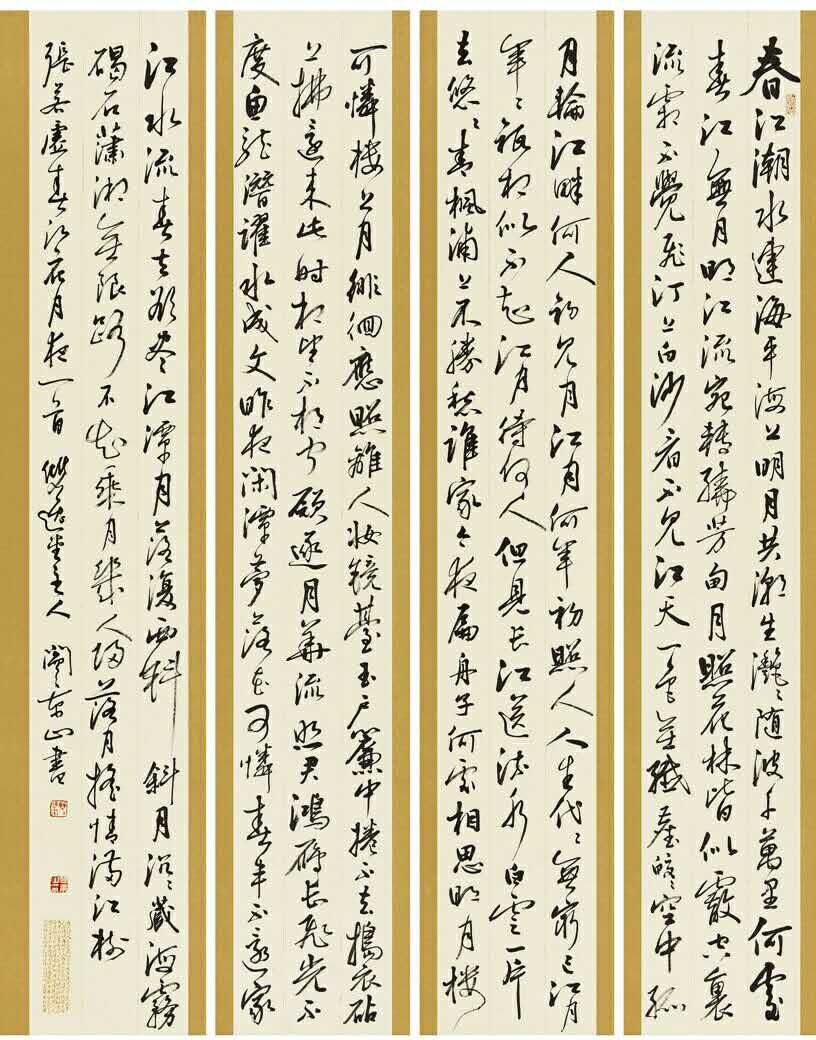 春江潮水連海平海上明月共潮生灩〻随波千萬里何處
春江無月明江流宛轉繞芳甸月照花林皆似霰空裏
流霜不覺飛汀上白沙看不見江天一色無纖塵皎〻空中孤
月輪江畔何人初見月江月何年初照人人生代〻無窮已江月
年〻祗相似不知江月待何人但見長江送流水白雲一片
去悠〻青楓浦上不勝愁誰家今夜扁舟子何處相思明月樓
可憐樓上月徘徊應照離人妝鏡臺玉戶簾中捲不去搗衣砧
上拂還來此時相望不相聞願逐月華流照君鴻雁長飛光不
度魚龍潛躍水成文昨夜閑潭夢落花可憐春半不還家
江水流春去欲盡江潭月落復西斜斜月沉〻藏海霧
碣石瀟湘無限路不知乘月幾人歸落月搖情滿江樹
張若虛春江花月夜一首堂主人東山書